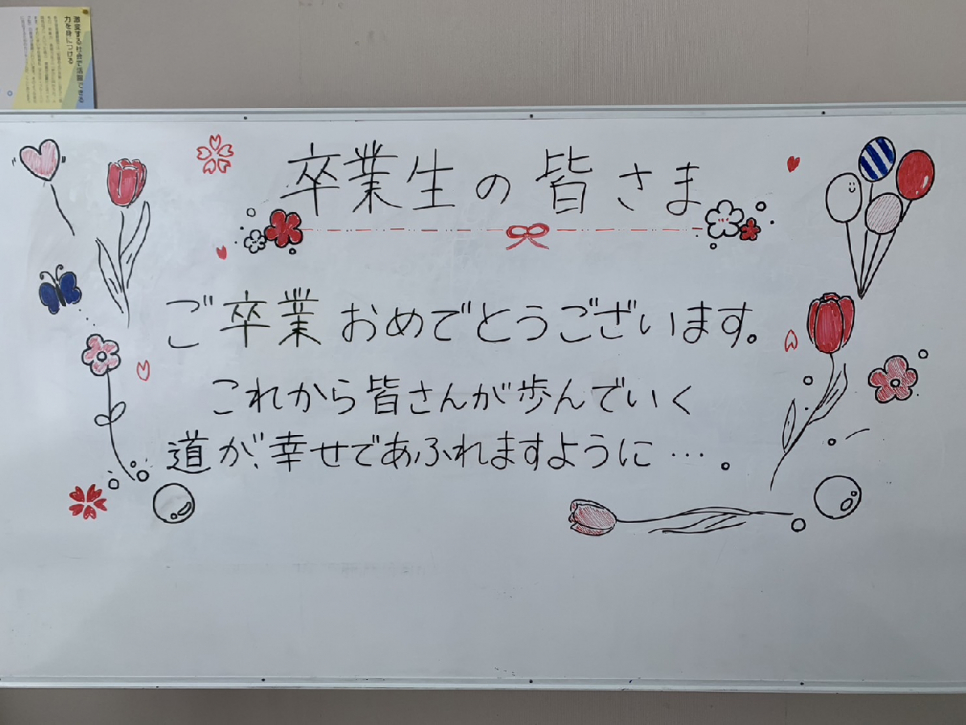 激変する社会で活躍できる
力を身につける
卒業生の皆さま
ご卒業おめでとうございます。
これから皆さんが歩んでいく
道が、幸せであふれますように…。